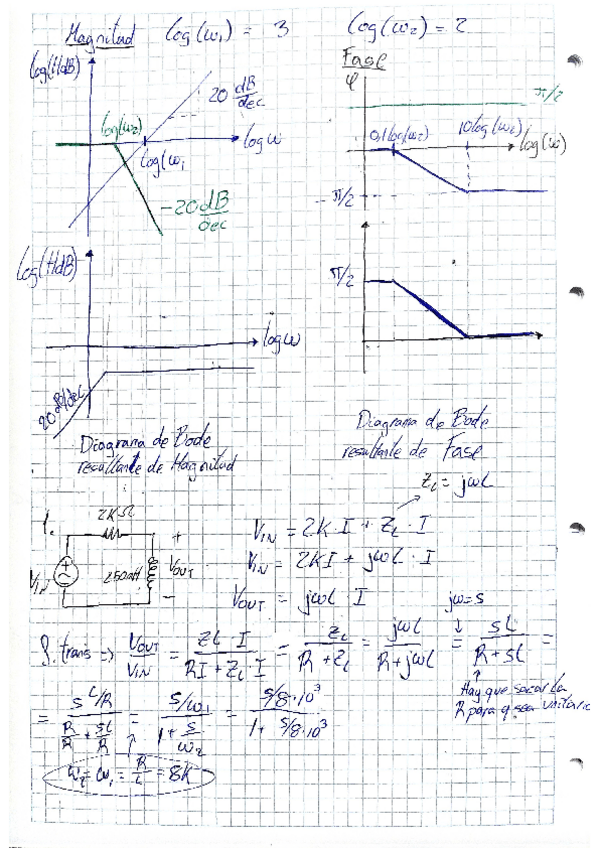 Magnitud log(ω₁) = 3 log(ω₂) = 2
Fase
log(HdB)
φ
20 dB/dec
π/2
log(ω₂)
log ω
log(ω₁
0,1 log(ω₂)
10 log(ω₂)
log(ω)
-20 dB/dec
-π/2
log(HdB)
π/2
log ω
20 dB/dec
Diagrama de Bode
resultante de Magnitud
Diagrama de Bode
resultante de Fase
Z_L = jωL
2KΩ
V_IN
250mH
+
V_OUT
-
V_IN = 2K·I + Z_L · I
V_IN = 2KI + jωL · I
V_OUT = jωL · I
jω = s
f. trans => V_OUT/V_IN = ZL · I / RI + Z_L · I = Z_L / R + Z_L = jωL / R + jωL = sL / R + sL =
Hay que sacar la
R para q sea unitario
= s L/R / R/R + sL/R = s/ω₁ / 1 + s/ω₂ = s/8·10³ / 1 + s/8·10³
ω₂ = ω₁ = R/L = 8K